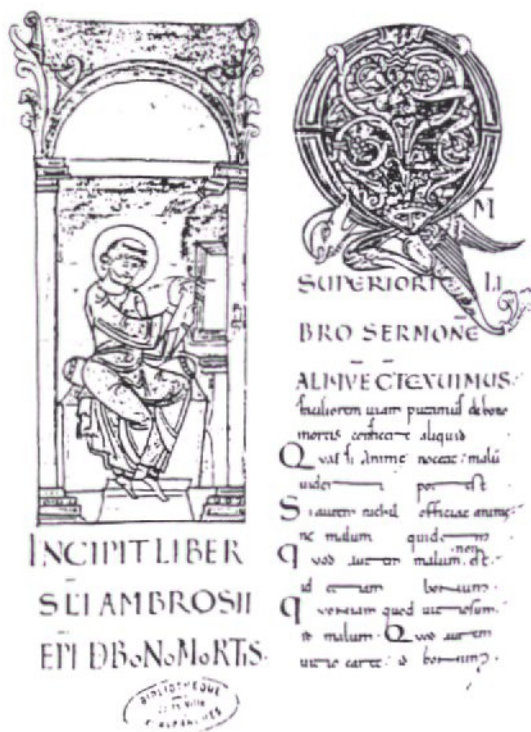 INCIPIT LIBER
SCI AMBROSII
EPI D BONO MORTIS.
BIBLIOTHEQUE
D'AVRANCHES
Q
M
SUPERIORE LI
BRO SERMONE
ALIQVE CTEXUIMUS.
faciliorem uiam putamus de bono
mortis conficere aliquid
Quae si anime noceat malu
uideri potest
Si autem nichil officiat anime
nec malum quidem
quod autem malum non est.
id etiam bonum.
quod uitiosum.
id malum. Quod autem
uitio caret: id bonum.